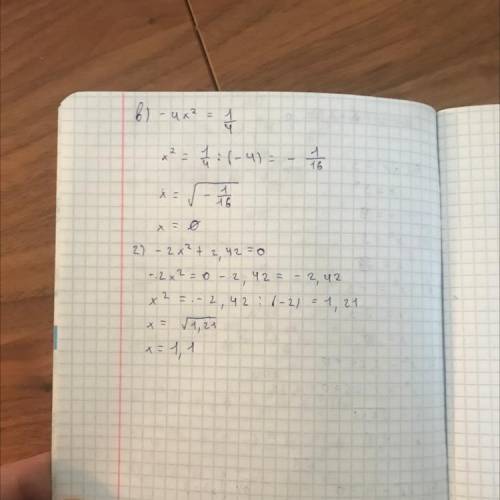 в) -4x² = 1/4
x² = 1/4 : (-4) = - 1/16
x = √(- 1/16)
x = ∅
г) -2x² + 2,42 = 0
-2x² = 0 - 2,42 = -2,42
x² = -2,42 : (-2) = 1,21
x = √1,21
x = 1,1